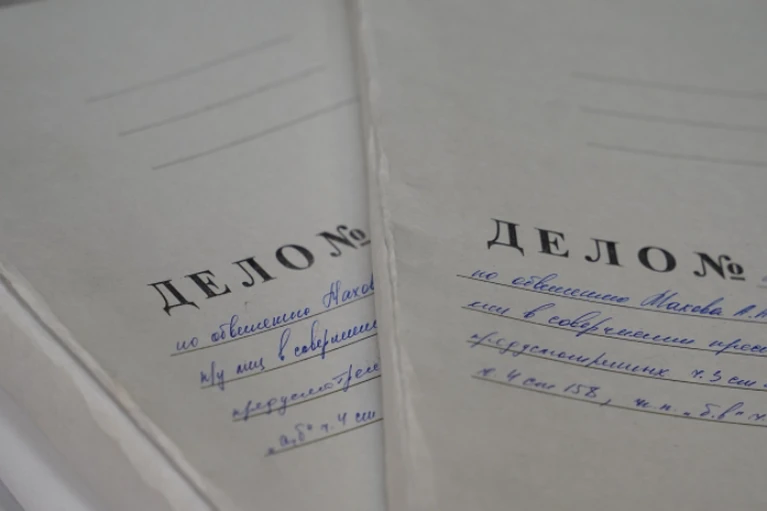 ДЕЛО №
по обвинению Махов
гр-
лиц в совершении
предусмотрен
"а,б" ч. 4 ст
ДЕЛО №
по обвинению Махова А.А
лиц в совершении прес
предусмотренных ч. 3 ст.
ч. 4 ст 158, п.п. "б,в" ч.